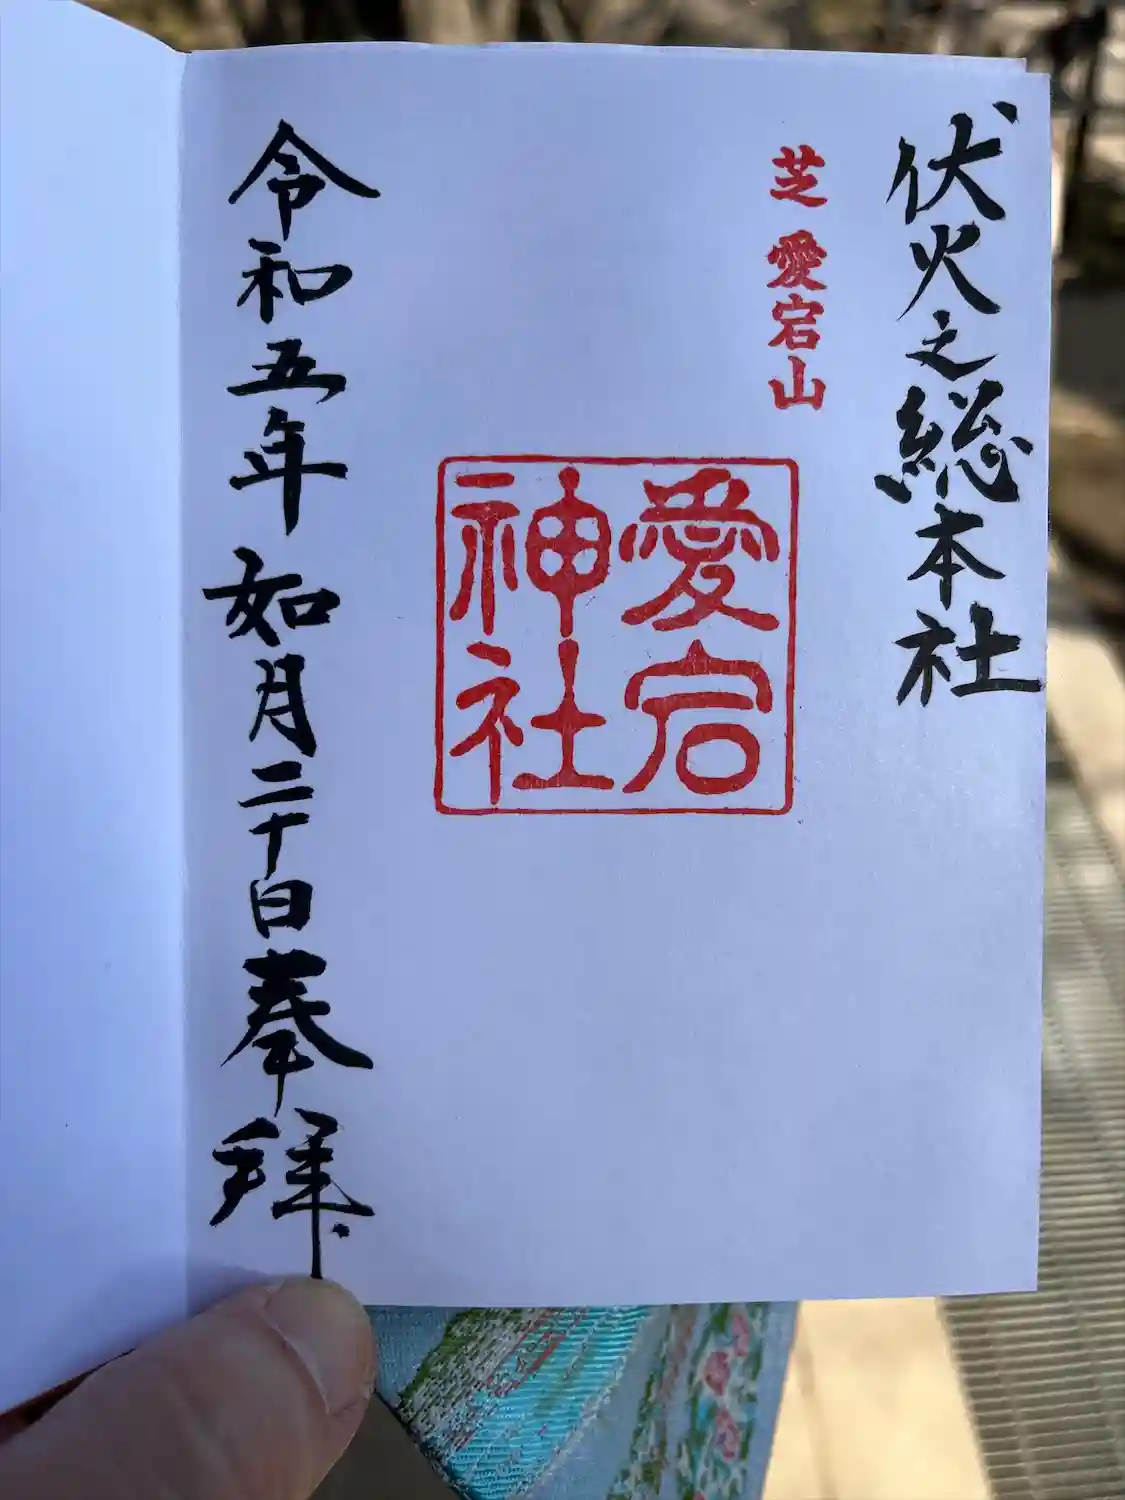 伏火之総本社
芝 愛宕山
愛宕
神社
令和五年 如月二十日奉拝